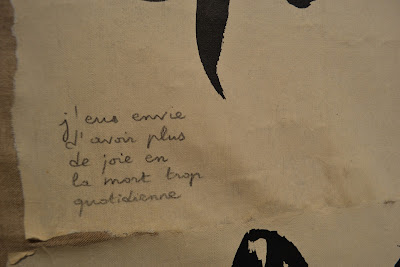 j'eus envie
d'avoir plus
de joie en
la mort trop
quotidienne